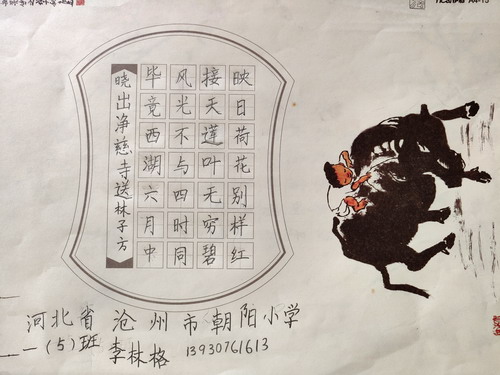 晓出净慈寺送林子方
毕竟西湖六月中
风光不与四时同
接天莲叶无穷碧
映日荷花别样红
河北省沧州市朝阳小学
一(5)班 李林格 13930761613